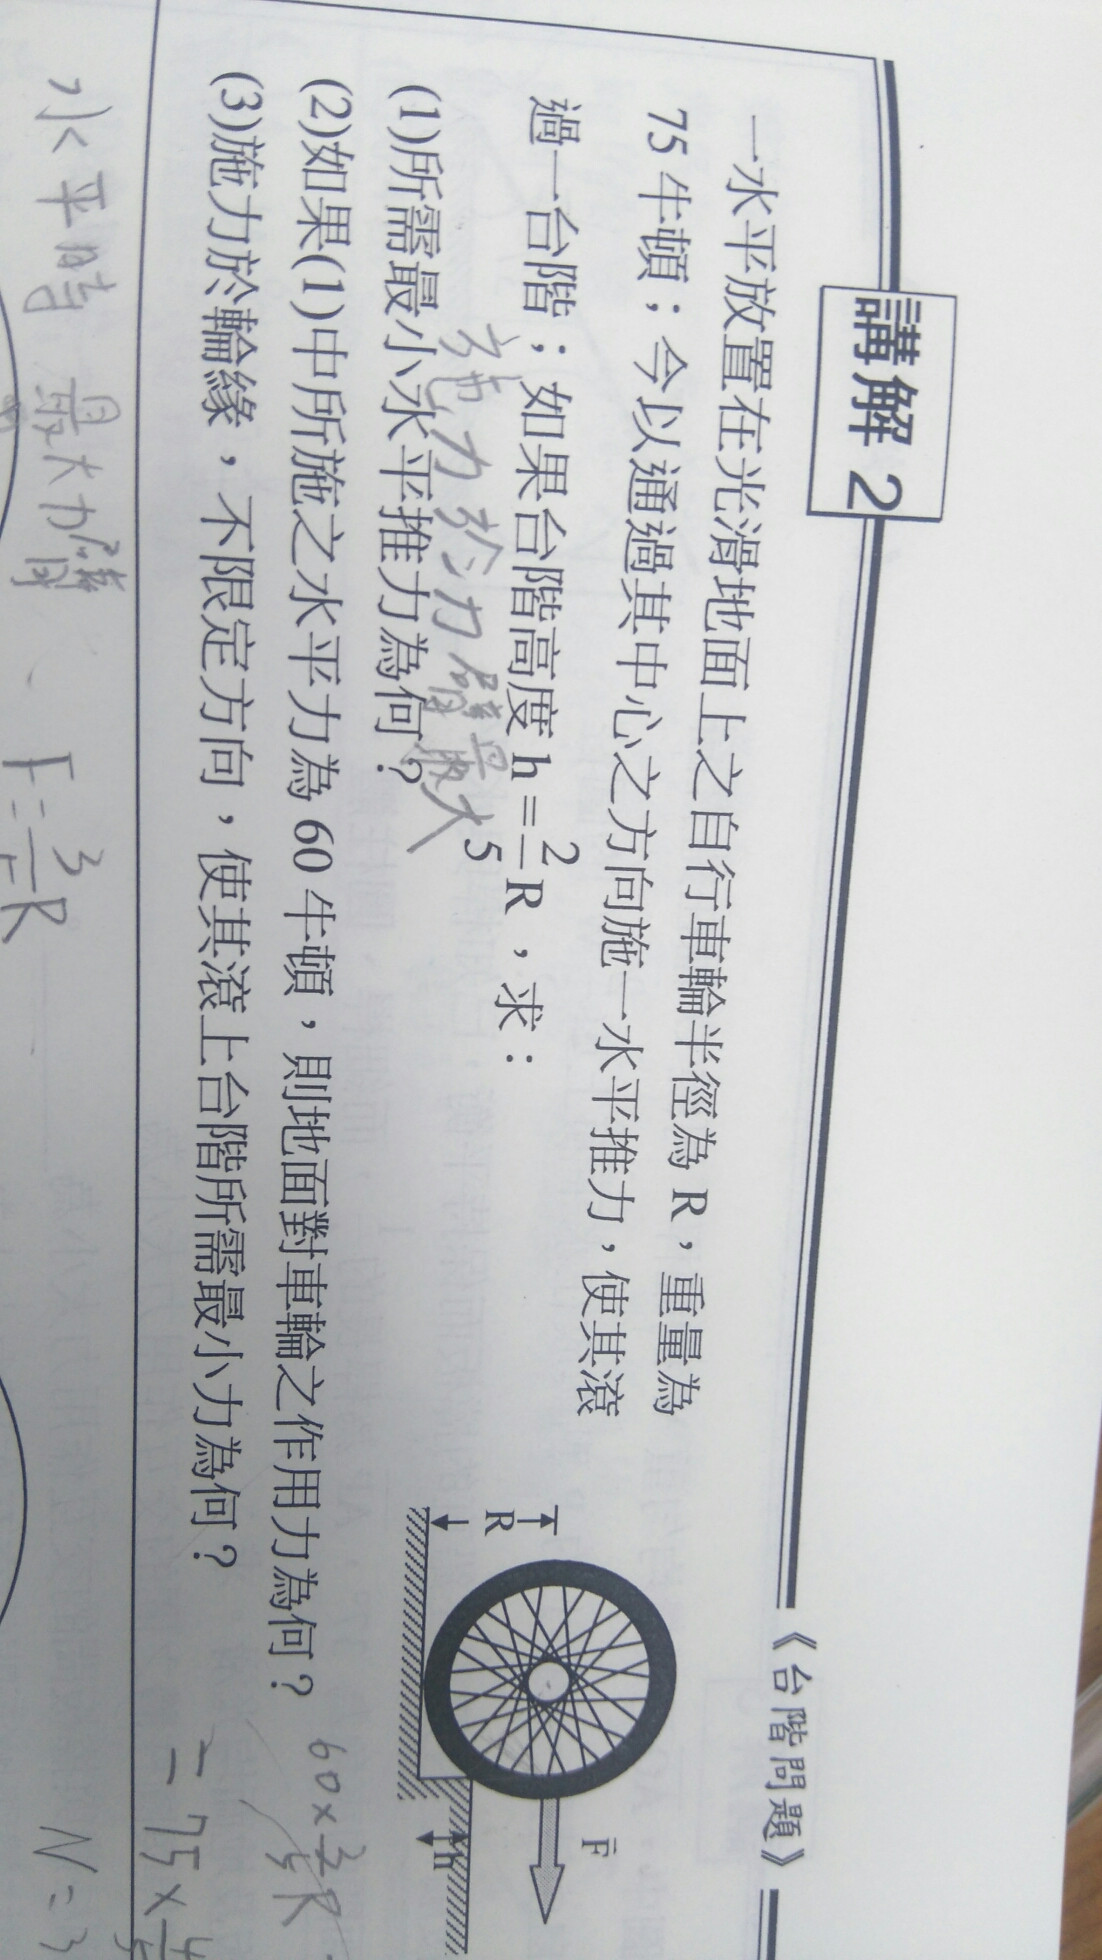 講解 2
《台階問題》
一水平放置在光滑地面上之自行車輪半徑為 R,重量為
75 牛頓;今以通過其中心之方向施一水平推力,使其滾
過一台階;如果台階高度 h = 2/5 R,求:
施力於力臂最大
(1)所需最小水平推力為何?
(2)如果(1)中所施之水平力為 60 牛頓,則地面對車輪之作用力為何?
(3)施力於輪緣,不限定方向,使其滾上台階所需最小力為何?
R
F
h
60×3/5R
= 75×4/5
N = 3
水平時 最大力臂